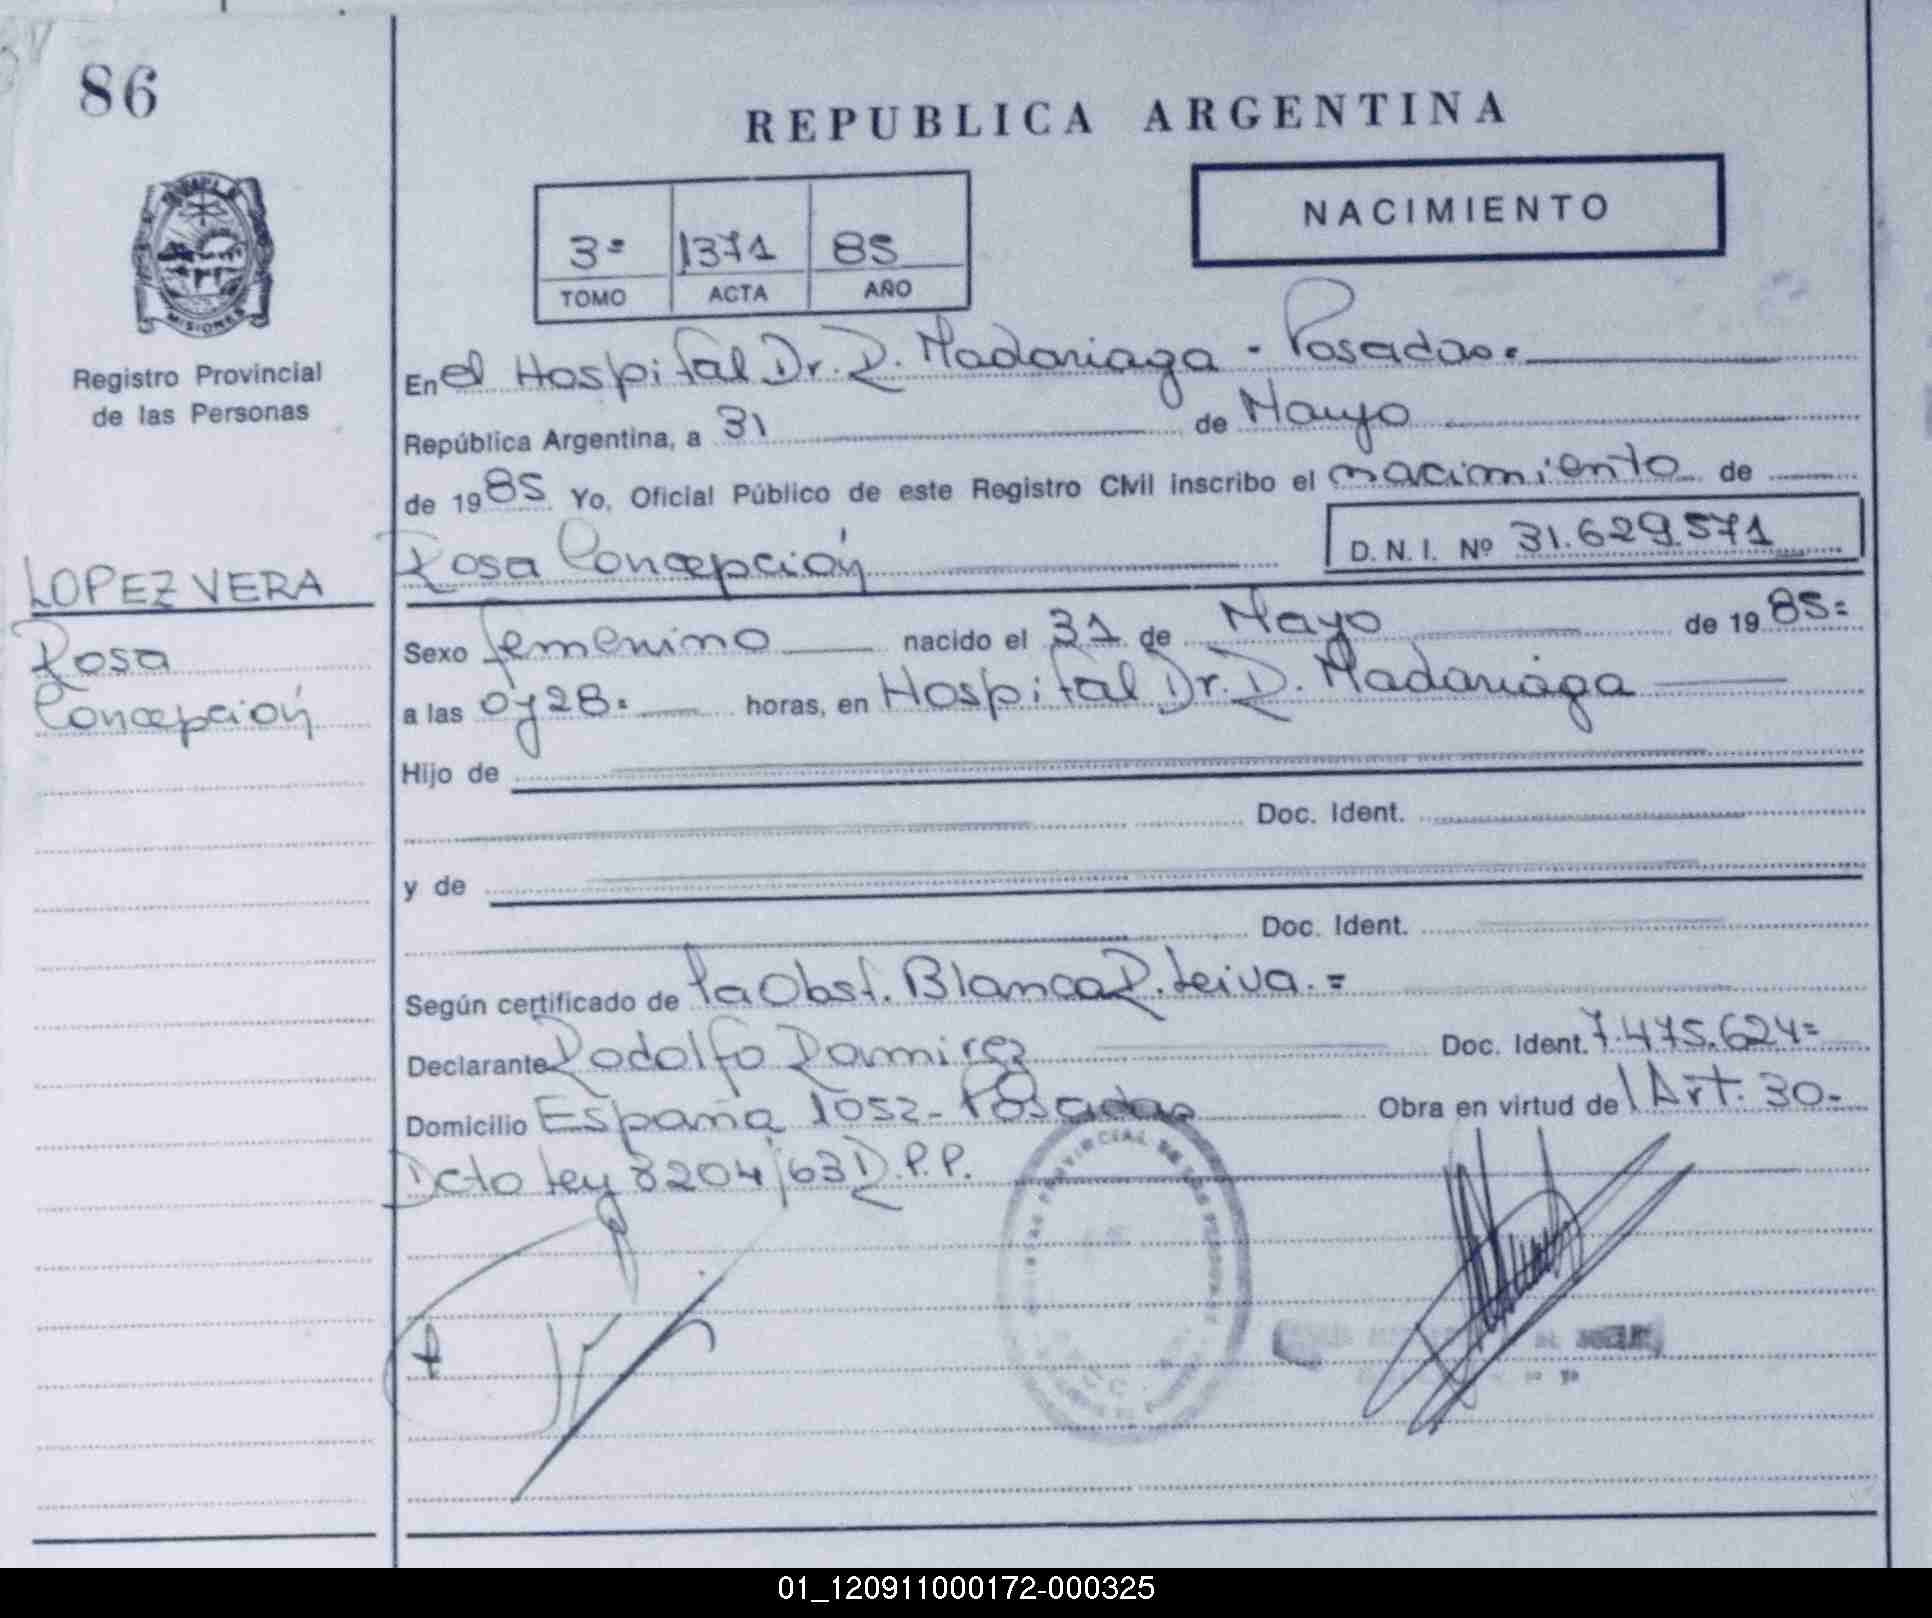 86
REPUBLICA ARGENTINA
NACIMIENTO
3º 1371 85
TOMO ACTA AÑO
MISIONES
Registro Provincial
de las Personas
LOPEZ VERA
Rosa
Concepción
En el Hospital Dr. R. Madariaga - Posadas.
República Argentina, a 31 de Mayo
de 1985 Yo, Oficial Público de este Registro Civil inscribo el nacimiento de
Rosa Concepción D.N.I. Nº 31.629.571
Sexo femenino nacido el 31 de Mayo de 1985=
a las 0 y 28= horas, en Hospital Dr. R. Madariaga
Hijo de
Doc. Ident.
y de
Doc. Ident.
Según certificado de la Obst. Blanca R. Leiva.=
Declarante Rodolfo Ramirez Doc. Ident. 7.475.624=
Domicilio España 1052- Posadas Obra en virtud del Art. 30-
Dcto Ley 8204/63 R.P.P.
PROVINCIAL DE LAS PERSONAS
01_120911000172-000325